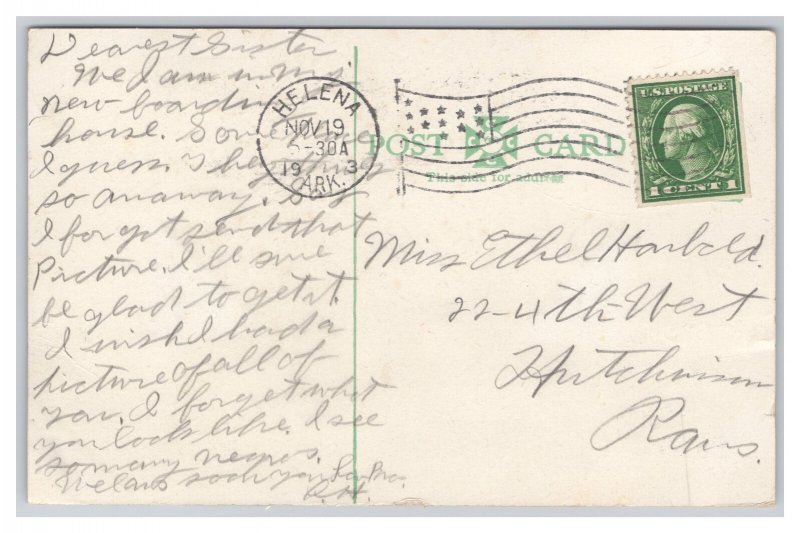 Dearest Sister
We I am in my
new boarding
house. Some
I guess.
so anaway. Say
I forgot send that
Picture. I'll sure
be glad to get it.
I wish I had a
picture of all of
you. I forget what
you look like. I see
so many negros.
Well ans soon your Lov Bro.
R.H.
HELENA
NOV 19
-30A
19 3
ARK.
POST CARD
This side for address
U.S. POSTAGE
1 CENT 1
Miss Ethel Harbold.
22-4th West
Hutchinson
Kans.